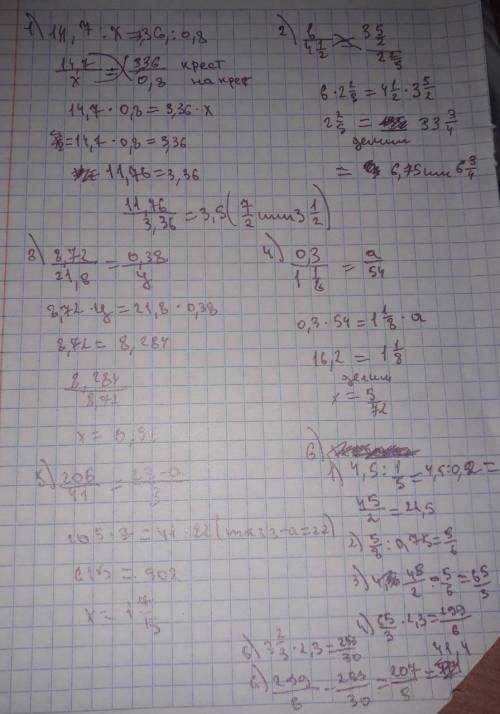 1) 14,7 : x = 3,36 : 0,8
14,7 / x = 336 / 0,8 крест на крест
14,7 · 0,8 = 3,36 · x
= 14,7 · 0,8 = 3,36
11,76 = 3,36
11,76 / 3,36 = 3,5 ( 7/2 или 3 1/2 )
2) b / 4 1/2 = 3 5/2 / 2 2/5
6 · 2 2/5 = 4 1/2 · 3 5/2
2 2/5 = 33 3/4
делим
= 6,75 или 6 3/4
3) 8,72 / 21,8 = 0,38 / y
8,72 · y = 21,8 · 0,38
8,72 = 8,284
8,284 / 8,72
x = 0,95
4) 0,3 / 1 1/8 = a / 54
0,3 · 54 = 1 1/8 · a
16,2 = 1 1/8
делим
x = 5/72
5) 205 / 41 = 23-a / 3
205 · 3 = 41 · 22 ( 23-a=22)
615 = 902
x = 1 7/15
6)
1) 4,5 : 1/5 = 4,5 : 0,2 =
45/2 = 22,5
2) 5/8 : 0,75 = 5/6
3) 45/2 : 5/6 = 65/3
4) 65/3 · 2,3 = 299/6
5) 3 2/3 · 2,3 = 253/30
6) 299/6 - 253/30 = 207/5 = 41,4